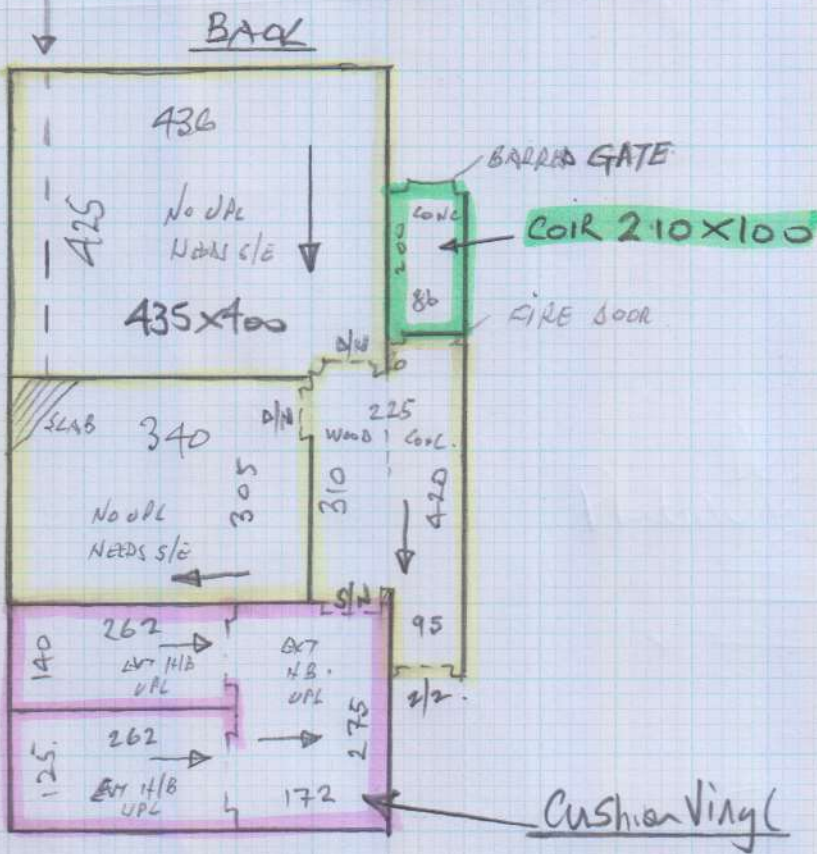 BACK
436
425
NO UPL
NEEDS S/E
435x400
BARRED GATE
CONC
200
86
COIR 210x100
FIRE DOOR
D/N
SLAB
340
D/N
225
WOOD
CONC.
305
310
420
NO UPL
NEEDS S/E
S/N
95
2/2.
140
262
EXT H/B
UPL
EXT
H/B.
UPL
275
125.
262
EXT H/B
UPL
172
Cushion Vinyl